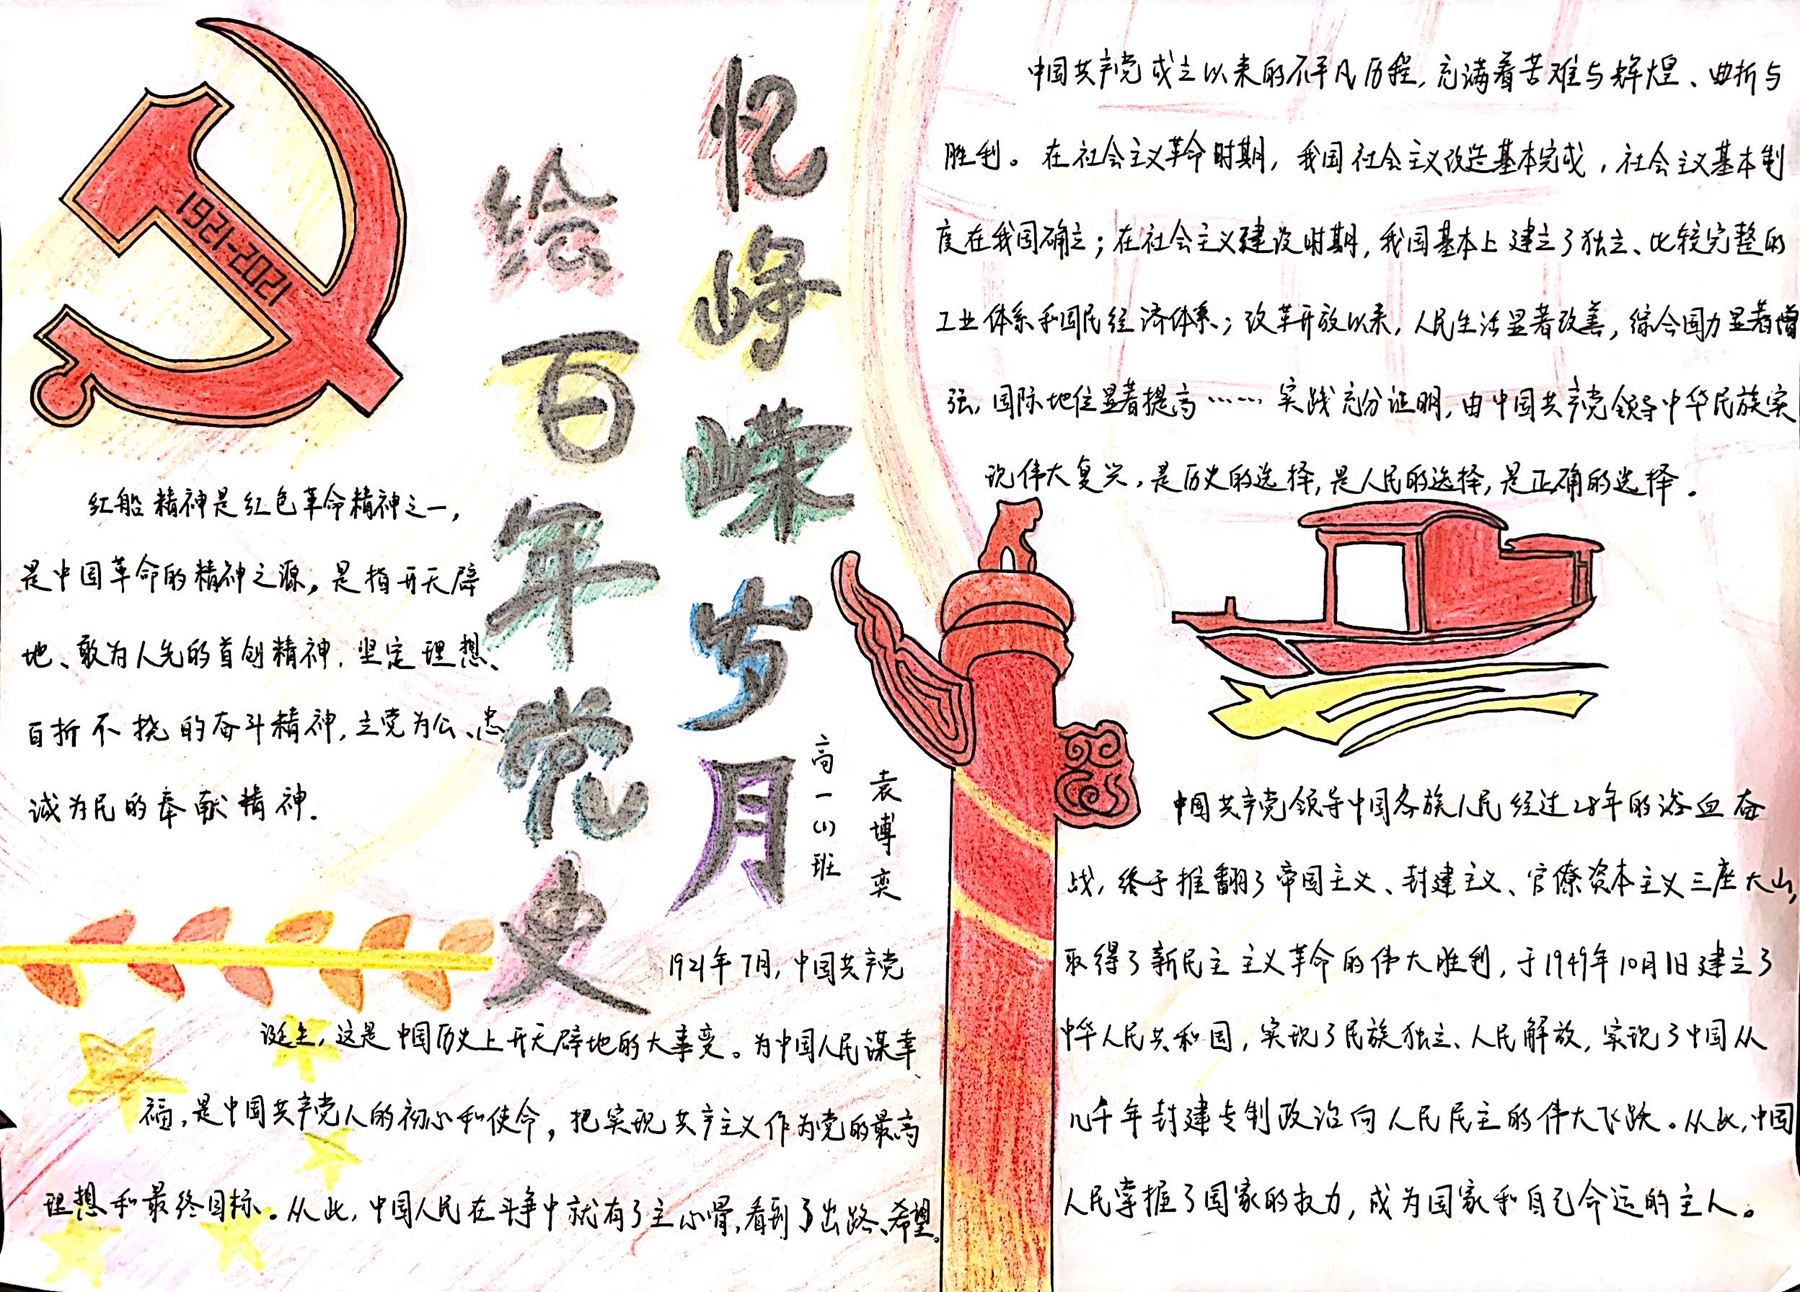 1921-2021
忆峥嵘岁月
绘百年党史
高一(1)班
袁博奕
红船精神是红色革命精神之一，
是中国革命的精神之源，是指开天辟
地、敢为人先的首创精神，坚定理想、
百折不挠的奋斗精神，立党为公、忠
诚为民的奉献精神.
1921年7月，中国共产党
诞生，这是中国历史上开天辟地的大事变。为中国人民谋幸
福，是中国共产党人的初心和使命，把实现共产主义作为党的最高
理想和最终目标。从此，中国人民在斗争中就有了主心骨，看到了出路、希望。
中国共产党成立以来的不平凡历程，充满着苦难与辉煌、曲折与
胜利。在社会主义革命时期，我国社会主义改造基本完成，社会主义基本制
度在我国确立；在社会主义建设时期，我国基本上建立了独立、比较完整的
工业体系和国民经济体系；改革开放以来，人民生活显著改善，综合国力显著增
强，国际地位显著提高……实践充分证明，由中国共产党领导中华民族实
现伟大复兴，是历史的选择，是人民的选择，是正确的选择.
中国共产党领导中国各族人民经过28年的浴血奋
战，终于推翻了帝国主义、封建主义、官僚资本主义三座大山，
取得了新民主主义革命的伟大胜利，于1949年10月1日建立了
中华人民共和国，实现了民族独立、人民解放，实现了中国从
几千年封建专制政治向人民民主的伟大飞跃。从此，中国
人民掌握了国家的权力，成为国家和自己命运的主人。